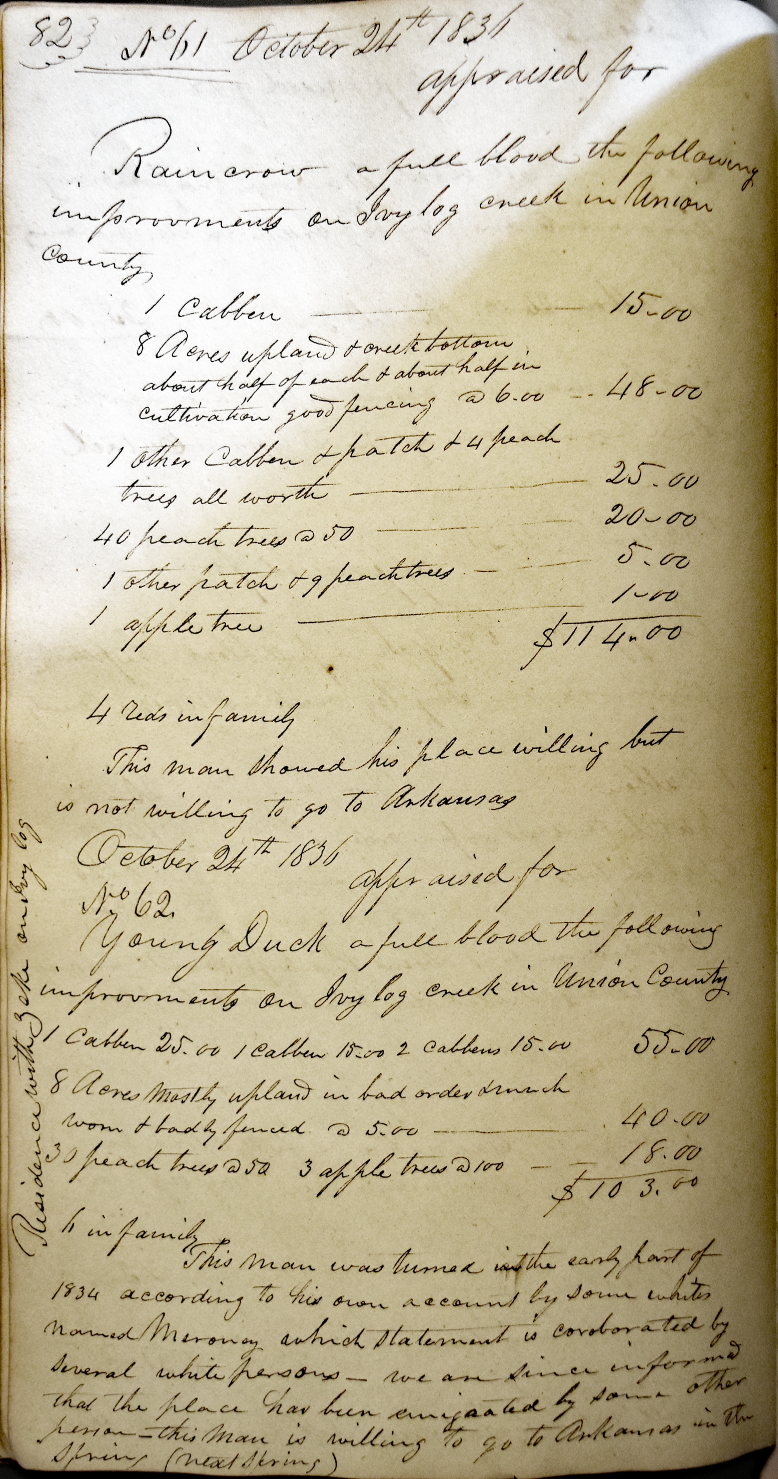 82
No 61 October 24th 1836
appraised for
Raincrow a full blood the following
improvments on Ivy log creek in Union
county
1 Cabben 15-00
8 Acres upland & creek bottom
about half of each & about half in
cultivation good fencing @ 6.00 48-00
1 other Cabben & patch & 4 peach
trees all worth 25-00
40 peach trees @ 50 20-00
1 other patch & 9 peach trees 5-00
1 apple tree 1-00
$114-00
4 reds in family
This man showed his place willing but
is not willing to go to Arkansas
October 24th 1836
appraised for
No 62.
Young Duck a full blood the following
improvments on Ivy log creek in Union County
1 Cabben 25.00 1 Cabben 15-00 2 cabbens 15.00 55-00
8 Acres Mostly upland in bad order & much
worn & badly fenced @ 5.00 40-00
30 peach trees @ 50 3 apple trees @ 100 18.00
$103.00
6 in family
This man was turned the early part of
1834 according to his own account by some whites
named Meroney which statement is coroborated by
several white persons - we are since informed
that the place has been by some other
person - this man is willing to go to Arkansas in the
Spring (next Spring)
Residence with Zeke on Ivy log